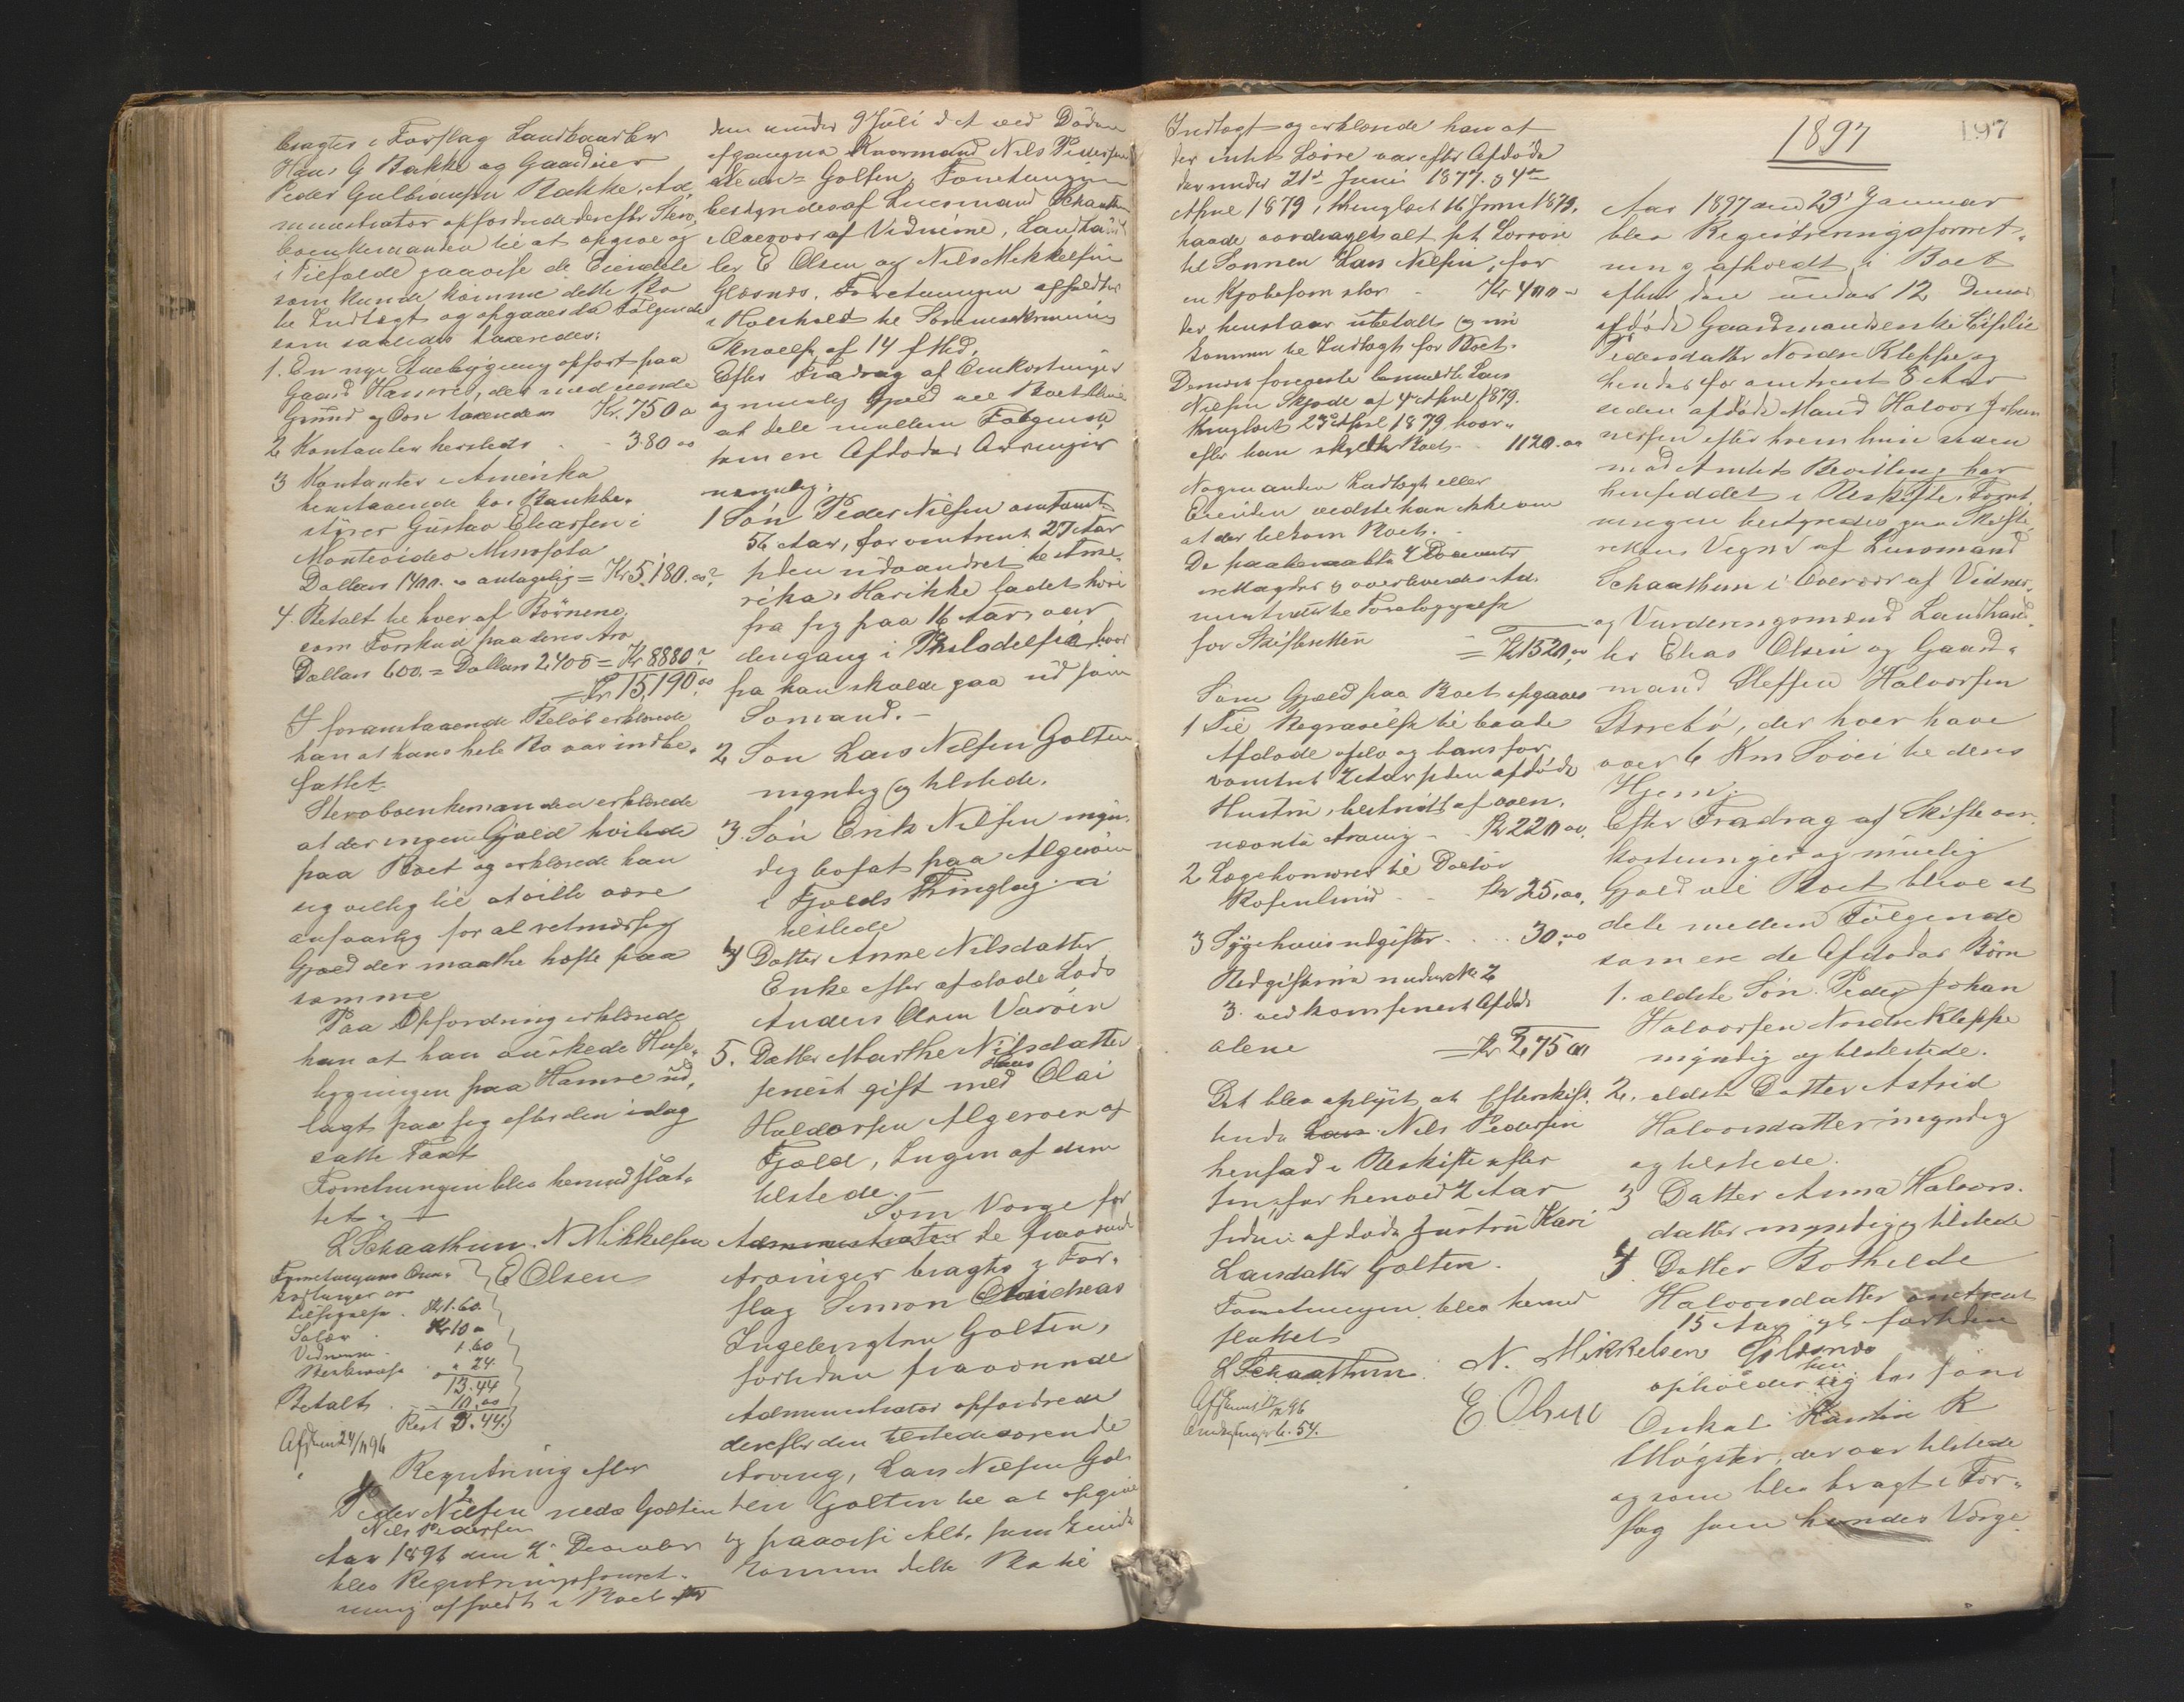 bragtes i Forslag Landhandler
Hans G Bakke og Gaardmand
Peder Gulbransen Bakke. Ad,
ministrator opfordrede derefter Stervo,
boenkemanden til at opgive og
i Tilfælde paavise de Eiendele
som kunde komme dette Bo
til Indtægt og opgaves da Følgende
som saaledes taxeredes:
1. En nye Stuebygning opført paa
Gaard Hamre, den medeiende
Grund og Ovn taxeredes Kr. 750 00
2 Kontanter hersteds - - 380 00
3 Kontanter i Amerika
henstaaende hos Bankbe,
styrer Gustav Elearsen i
Montevideo Minesota
Dollars 1400. antagelig = Kr 5,180.00?
4. Betalt til hver af Børnene
som Forskud paa deres Arv
Dollars 600. = Dollars 2400 = Kr 8880?
= Kr 15,190.00
I foranstaaende Beløb erklærede
han at hans hele Bo var indbe,
fattet
Stervboenkemanden erklærede
at der ingen Gjæld hvilede
paa Boet og erklærede han
sig villig til at ville være
ansvarlig for al retmæssig
Gjæld der maatte hæfte paa
samme
Paa Opfordring erklærede
han at han ønskede Huse,
bygningen paa Hamre ud,
lagt paa sig efter den idag
satte Taxt
Forretningen blev hermed slut,
tet. -
L Schaathun. N Mikkelsen
E Olsen
Forretningens Om,
kostninger ere
Tilsigelse . Kr 1.60
Salær . Kr 10 00
Vidnerne . 1.60
Skrivelse . " 24
13.44
Betalt . - 10.00
Rest 3.44.
Afsendt 24/11 96
Registrering efter
Peder Nilsen nedre Golten
Nils Pedersen
Aar 1896 den 2 December
blev Registreringsforret,
ning afholdt i Boet efter
den under 9 Juli d A ved Døden
afgangne Kaarmand Nils Pedersen
Nedre Golten. Forretningen
bestyredes af Lensmand Schaathun
i Overvær af Vidnerne, Landhand
ler E Olsen og Nils Mikkelsen
Glæsnæs. Forretningen afholdtes
i Henhold til Sorenskriverens
Skrivelse af 14 f Md.
Efter Fradrag af Omkostninger
og muelig Gjæld vil Boet blive
at dele mellem Følgende
som ere Afdødes Arvinger
nemlig:
1 Søn Peder Nilsen omtrent
56 Aar, for omtrent 27 Aar
siden udvandret til Ame,
rika. Har ikke ladet høre
fra sig paa 16 Aar, var
dengang i Philadelfia hvor
fra han skulde gaa ud som
Sømand. -
2 Søn Lars Nilsen Golten
myndig og tilstede.
3. Søn Erik Nilsen myn,
dig bosat paa Algerøen
i Fjelds Thinglag ei
tilstede
4 Datter Anne Nilsdatter
Enke efter afdøde Lods
Anders Olsen Varøen
5. Datter Marthe Nilsdatter
senest gift med Hans Olai
Haldorsen Algerøen af
Fjeld, Ingen af dem
tilstede. -
Som Værge for
Administrator de fraværende
Arvinger bragtes i For,
slag Simon Andreas
Ingebrigtsen Golten,
fortiden fraværende
Administrator opfordrede
derefter den tilstedeværende
Arving, Lars Nilsen Gol
ten Golten til at opgive
og paavise Alt, som kunde
komme dette Bo til
Indtægt og erklærede han at
der intet Løsøre var efter Afdøde
der under 21de Juni 1877. og 4de
April 1879, thinglæst 16 Juni 1879.
havde overdraget alt sit Løsøre
til Sønnen Lars Nilsen, for
en Kjøbesom stor - Kr 400 -
der henstaar ubetalt og nu
kommer til Indtægt for Boet.
Derimod foreviste bemeldte Lars
Nilsen Skjøde af 4de April 1879.
thinglæst 23de April 1879 hvor,
efter han skylder Boet - - 1120.00
Nogen anden Indtægt eller
Eiendom vidste han ikke om
at der tilkom Boet.
De paaberaabte 2 Documenter
modtoges og overleveredes Ad,
ministrator til Forelæggelse
for Skifteretten = Kr 1520,00
Som Gjæld paa Boet opgaves
1 Til Begravelse til baade
Afdøde selv og hans for
omtrent 2 Aar siden afdøde
Hustru, bestridt af oven,
nævnte Arving - - Kr 220 00.
2 Lægehonorar til Doctor
Rosenlund - - Kr 25,00.
3 Sygehuusudgifter . . . 30,00
Udgifterne under No 2
3. vedkom senest Afdøde
alene = Kr 275 00
Det blev oplyst at Efterskif.
tende Lars Nils Pedersen
hensad i Uskifte efter
sin, for henved 2 Aar
siden afdøde Hustru Kari
Larsdatter Golten.
Forretningen blev hermed
sluttet
L Schaathun. N. Mikkelsen Glæsnæs
E Olsen
Afsendt 17/12 96
Omkostninger 6. 54.
197
1897
Aar 1897 den 29de Januar
blev Registreringsforret,
ning afholdt i Boet
efter den under 12 Decbr
afdøde Gaardmandsenke
Pedersdatter Nordre Kleppe og
hendes for omtrent 8 Aar
siden afdøde Mand Halvor Johan
nessen efter hvem hun siden
med Amtets Bevilling har
hensiddet i Uskifte. Forret,
ningen bestyredes paa Skifte,
rettens Vegne af Lensmand
Schaathun i Overvær af Vidner
og Vurderingsmænd Landhand,
ler Elias Olsen og Gaard,
mand Steffen Halvorsen
Storebø, der hver have
over 6 Km Søvei til deres
Hjem.
Efter Fradrag af Skifteom,
kostninger og muelig
Gjæld vil Boet blive at
dele mellem Følgende
som ere de Afdødes Børn
1. ældste Søn Peder Johan
Halvorsen Nordre Kleppe
myndig og tilstede.
2. ældste Datter Astrid
Halvorsdatter myndig
og tilstede.
3 Datter Anna Halvors,
datter myndig og tilstede
4. Datter Bothilde
Halvorsdatter omtrent
15 Aar gl fortiden
opholder hun sig hos sin
Onkel R
Møgster, der var tilstede
og som blev bragt i For,
slag som hendes Værge